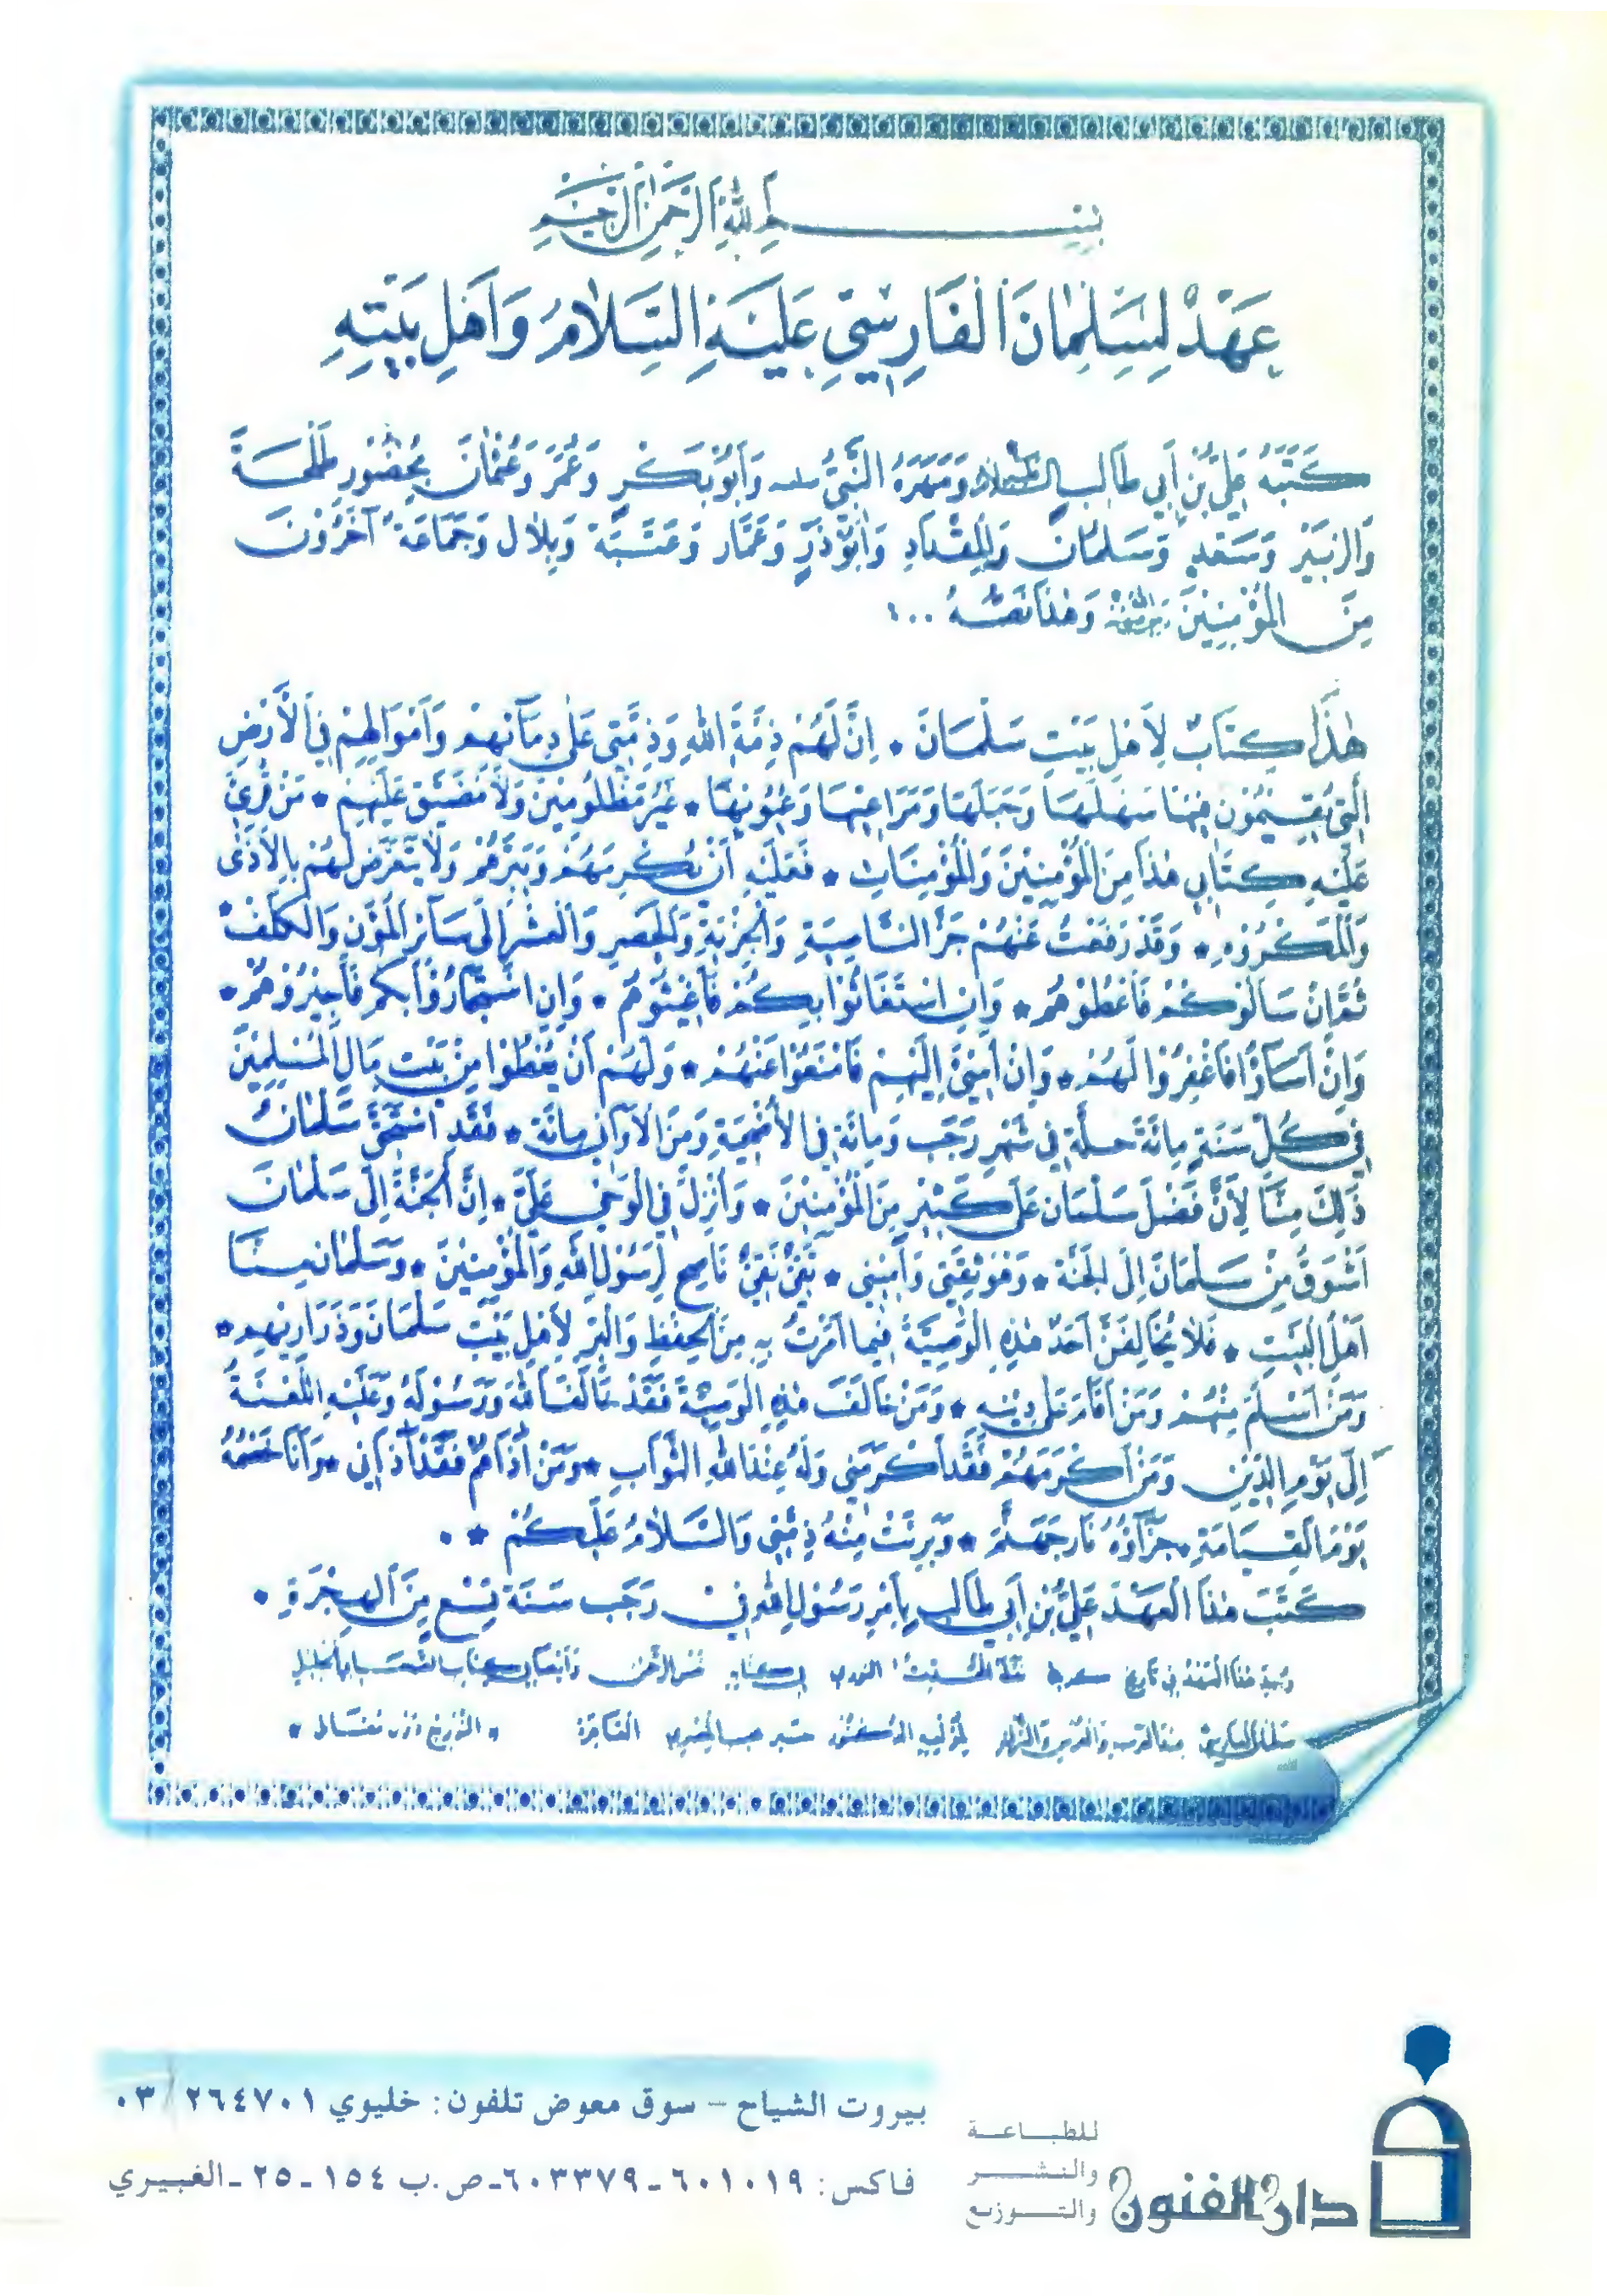 بِسْمِ اللهِ الرَّحْمٰنِ الرَّحِيْمِ
عَهْدٌ لِسَلْمَانَ الْفَارِسِيِّ عَلَيْهِ السَّلَامُ وَأَهْلِ بَيْتِهِ
كَتَبَهُ عَلِيُّ بْنُ أَبِي طَالِب عليه السلام وَمَهَرَهُ النَّبِيُّ وَأَبُوبَكْرٍ وَعُمَرَ وَعُثْمَانَ بِحُضُورِ طَلْحَةَ
وَالزُّبَيْرِ وَسَعْدٍ وَسَلْمَانَ وَالْمِقْدَادِ وَأَبُوْذَرٍّ وَعَمَّار وَعَنْبَسَة وَبِلَال وَجَمَاعَةٌ آخَرُوْنَ
مِنَ الْمُؤْمِنِيْنَ وَهٰذَا نَصُّهُ ...
هٰذَا كِتَابٌ لِأَهْلِ بَيْتِ سَلْمَانَ * إِنَّ لَهُمْ ذِمَّةَ اللهِ وَذِمَّتِي عَلَى دِمَآئِهِمْ وَأَمْوَالِهِمْ فِي الْأَرْضِ
الَّتِي يُقِيْمُوْنَ فِيْهَا سَهْلَهَا وَجَبَلَهَا وَمَرَاعِيْهَا وَعُيُوْنِهَا * غَيْرُ مَظْلُوْمِيْنَ وَلَا مُضَيَّق عَلَيْهِمْ * مَنْ قُرِئَ
عَلَيْهِ كِتَابِي هٰذَا مِنَ الْمُؤْمِنِيْنَ وَالْمُؤْمِنَاتِ * فَعَلَيْهِ أَنْ يُكْرِمَهُمْ وَيَبَرَّهُمْ وَلَا يَتَعَرَّض لَهُمْ بِالْأَذٰى
وَالْمَكْرُوْهِ * وَقَدْ رَفَعْتُ عَنْهُمْ جَزَّ النَّاصِيَةِ وَالْجِزْيَةِ وَالْحَصْرِ وَالْعُشْرِ إِلَى سَآئِرِ الْمُؤَنِ وَالْكُلَفِ *
ثُمَّ إِنْ سَأَلُوكُمْ فَأَعْطُوْهُمْ * وَإِنِ اسْتَغَاثُوْا بِكُمْ فَأَغِيْثُوْهُمْ * وَإِنِ اسْتَجَارُوْا بِكُمْ فَأَجِيْرُوْهُمْ *
وَإِنْ أَسَاؤُا فَاغْفِرُوْا لَهُمْ * وَإِنْ أُسِيْءَ إِلَيْهِمْ فَامْنَعُوْا عَنْهُمْ * وَلَهُمْ أَنْ يُعْطَوْا مِنْ بَيْتِ مَالِ الْمُسْلِمِيْنَ
فِي كُلِّ سَنَةٍ مِائَةَ حُلَّةٍ فِي شَهْرِ رَجَب وَمِائَة فِي الْأُضْحِيَةِ وَمِنَ الْأَوَانِي مِائَة * فَقَدِ اسْتَحَقَّ سَلْمَانُ
ذٰلِكَ مِنَّا لِأَنَّ فَضْلَ سَلْمَان عَلَى كَثِيْرٍ مِنَ الْمُؤْمِنِيْنَ * وَأُنْزِلَ فِي الْوَحْيِ عَلَيَّ * إِنَّ الْجَنَّةَ إِلَى سَلْمَانَ
أَشْوَقُ مِنْ سَلْمَانَ إِلَى الْجَنَّة * وَهُوَ ثِقَتِي وَأَمِيْنِي * تَقِيٌّ نَقِيٌّ نَاصِحٌ لِرَسُوْلِ اللهِ وَالْمُؤْمِنِيْنَ * وَسَلْمَان مِنَّا
أَهْلَ الْبَيْتِ * فَلَا يُخَالِفَنَّ أَحَدٌ هٰذِهِ الْوَصِيَّةَ فِيْمَا أَمَرْتُ بِهِ مِنَ الْحِفْظِ وَالْبِرِّ لِأَهْلِ بَيْتِ سَلْمَانَ وَذَرَارِيْهِمِ *
وَمَنْ أَسْلَمَ مِنْهُمْ وَمَنْ أَقَامَ عَلَى دِيْنِهِ * وَمَنْ خَالَفَ هٰذِهِ الْوَصِيَّةَ فَقَدْ خَالَفَ اللهَ وَرَسُوْلَهُ وَعَلَيْهِ اللَّعْنَةُ
إِلَى يَوْمِ الدِّيْنِ وَمَنْ أَكْرَمَهُمْ فَقَدْ أَكْرَمَنِي وَلَهُ عِنْدَ اللهِ الثَّوَاب * وَمَنْ آذَاهُمْ فَقَدْ آذَانِي * وَأَنَا خَصْمُهُ
يَوْمَ الْقِيَامَةِ * جَزَآؤُهُ نَارُ جَهَنَّمَ * وَبَرِئَتْ مِنْهُ ذِمَّتِي وَالسَّلَامُ عَلَيْكُمْ *
كَتَبَ هٰذَا الْعَهْدَ عَلِيُّ بْنُ أَبِي طَالِب بِأَمْرِ رَسُوْلِ اللهِ فِي رَجَب سَنَة تِسْع مِنَ الْهِجْرَةِ .
هٰذَا فِي تاريخ النوري في كتاب نفس الرحمن
سلمان الفارسي القاهرة
بيروت الشياح - سوق معوض تلفون: خليوي ٢٦٤٧٠١ / ٠٣
فاكس: ٦٠١٠١٩ - ٦٠٣٣٧٩ - ص.ب ١٥٤ - ٢٥ - الغبيري
دار الفنون
للطباعة
والنشر
والتوزيع